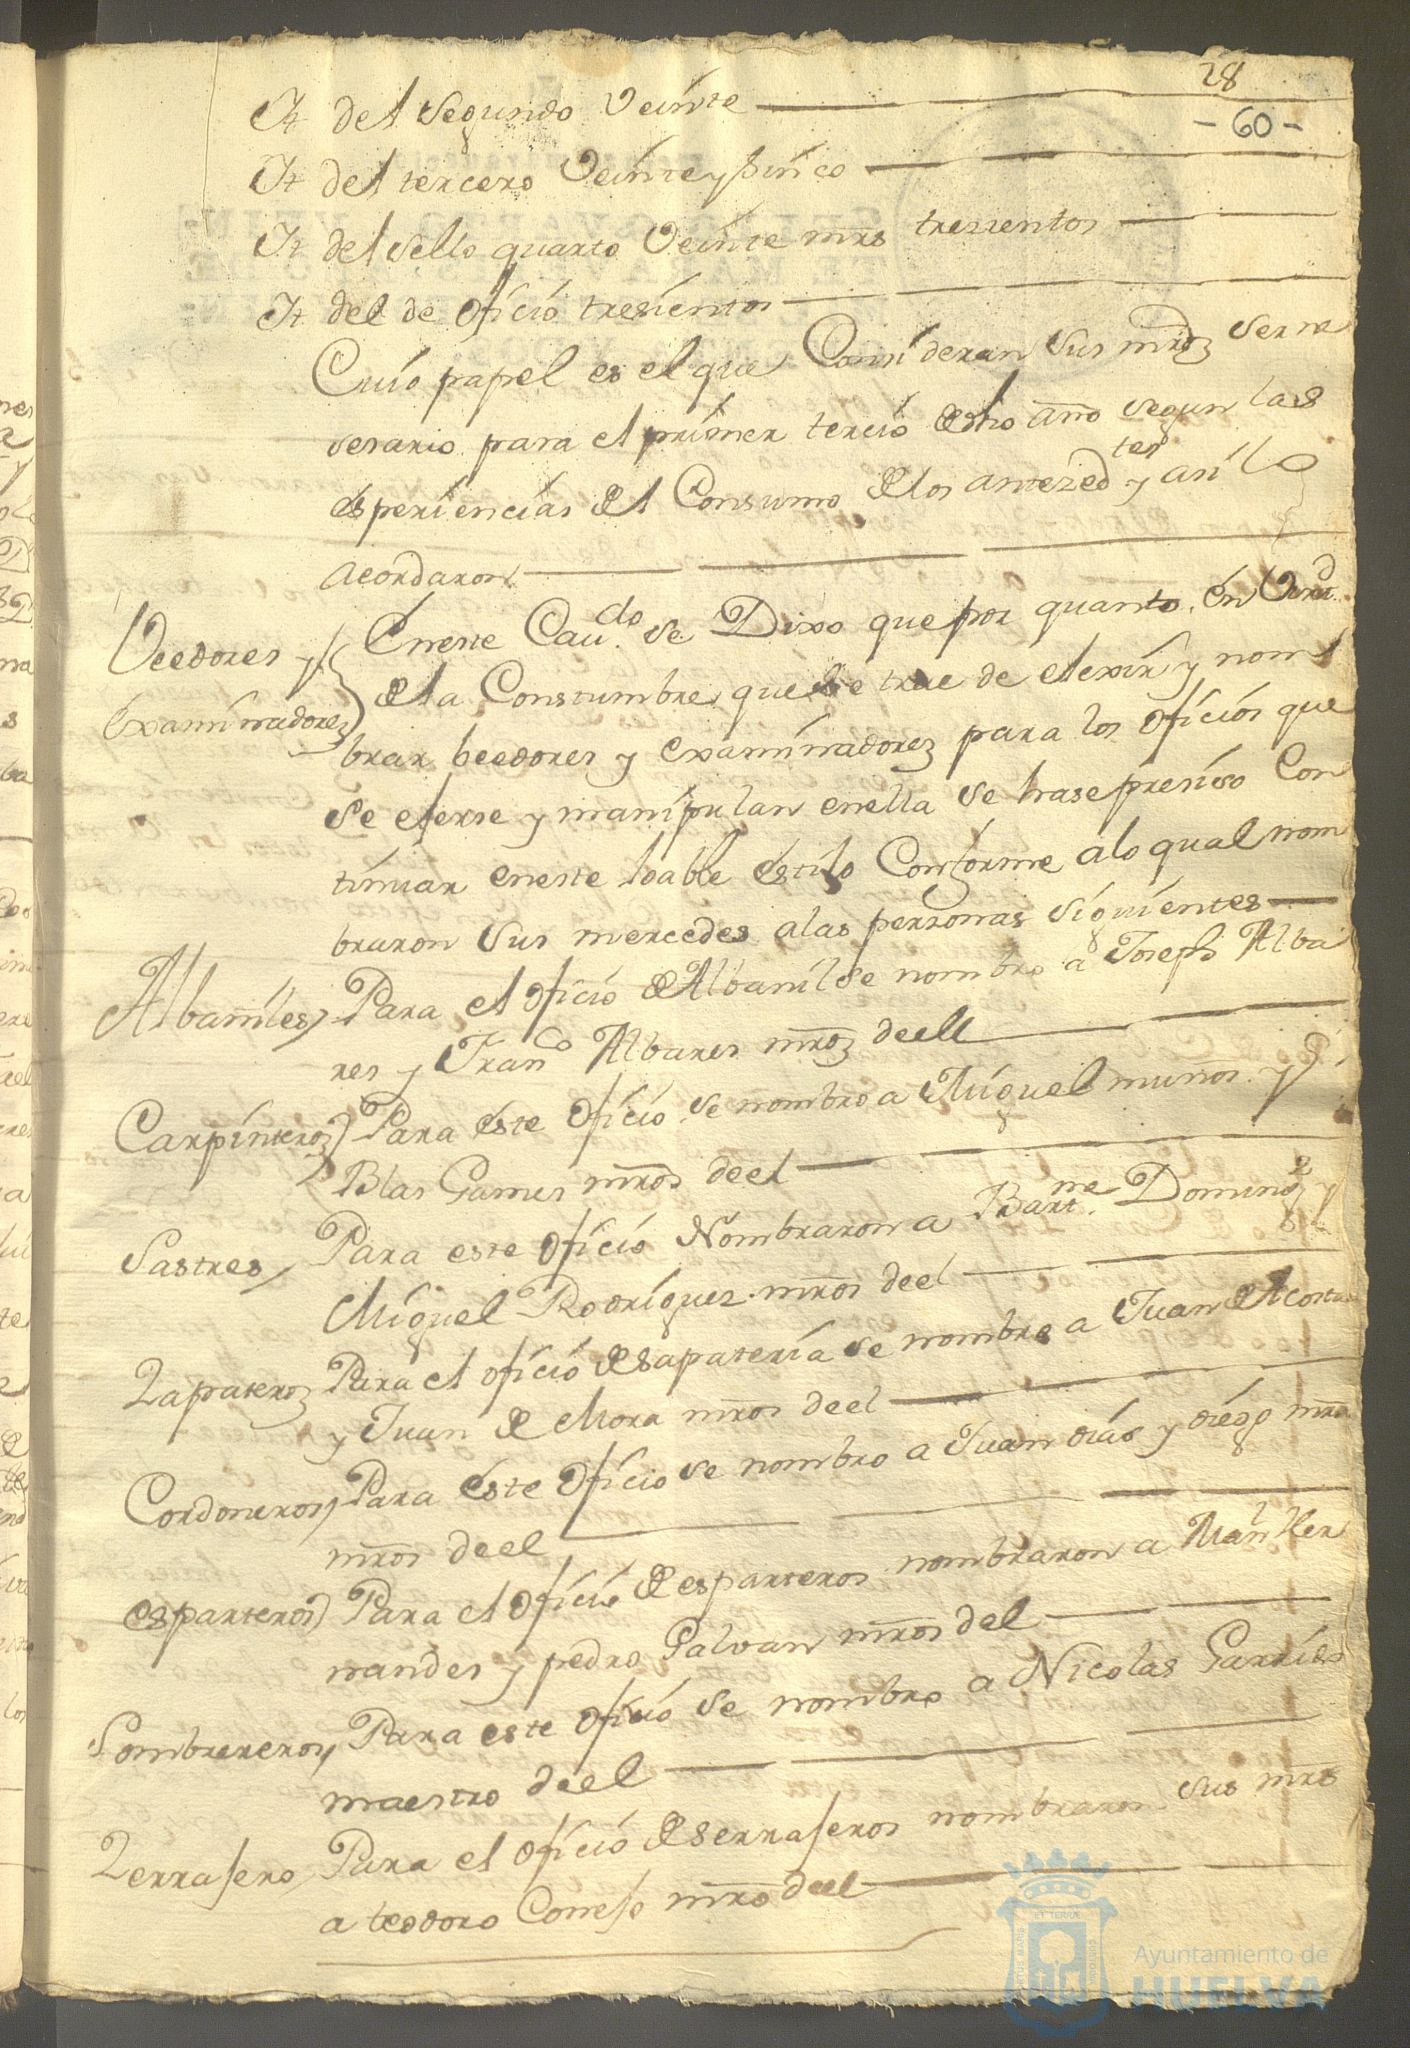 28
- 60 -
It del segundo Veinte
It del tercero Veinte y sinco
It del sello quarto Veinte mrs tresientos
It del de oficio tresientos
Cuio papel es el que Consideran sus mrdz ser ne
sesario para el primer tercio deste año segun las
esperiencias del Consumo de los antezedtes y asi lo
acordaron
Veedores y
examinadorez
Eneste Caudo se Dixo que por quanto en Virtd
de la Constumbre que se trae de elexir y nom
brar beedores y examinadorez para los oficios que
se eserse y manipulan enella se hase presiso Con
tinuar eneste loable estilo Conforme alo qual nom
braron sus mercedes alas personas siguientes
Albañiles) Para el oficio de Albañil se nombro a Joseph Alba
res y Franco Albares mroz deell
Carpinteroz) Para este oficio se nombro a Miguel muños y
Blas Games mros deel
Sastres Para este oficio Nombraron a Bartme Domingz y
Miguel Rodriguez mros deel
Zapateroz Para el oficio de sapateria se nombro a Juan de Acosta
y Juan de Mora mros deel
Cordoneros) Para este oficio se nombro a Juan dias y diego mrn
mros deel
esparteros) Para el oficio de esparteros nombraron a Manl Her
nandes y pedro Galvan mros del
Sombrereros, Para este oficio se nombro a Nicolas Garrido
maestro deel
Zerrajero Para el oficio de serrajeros nombraron sus mrs
a teodoro Conejo mro deel
Ayuntamiento de
HUELVA